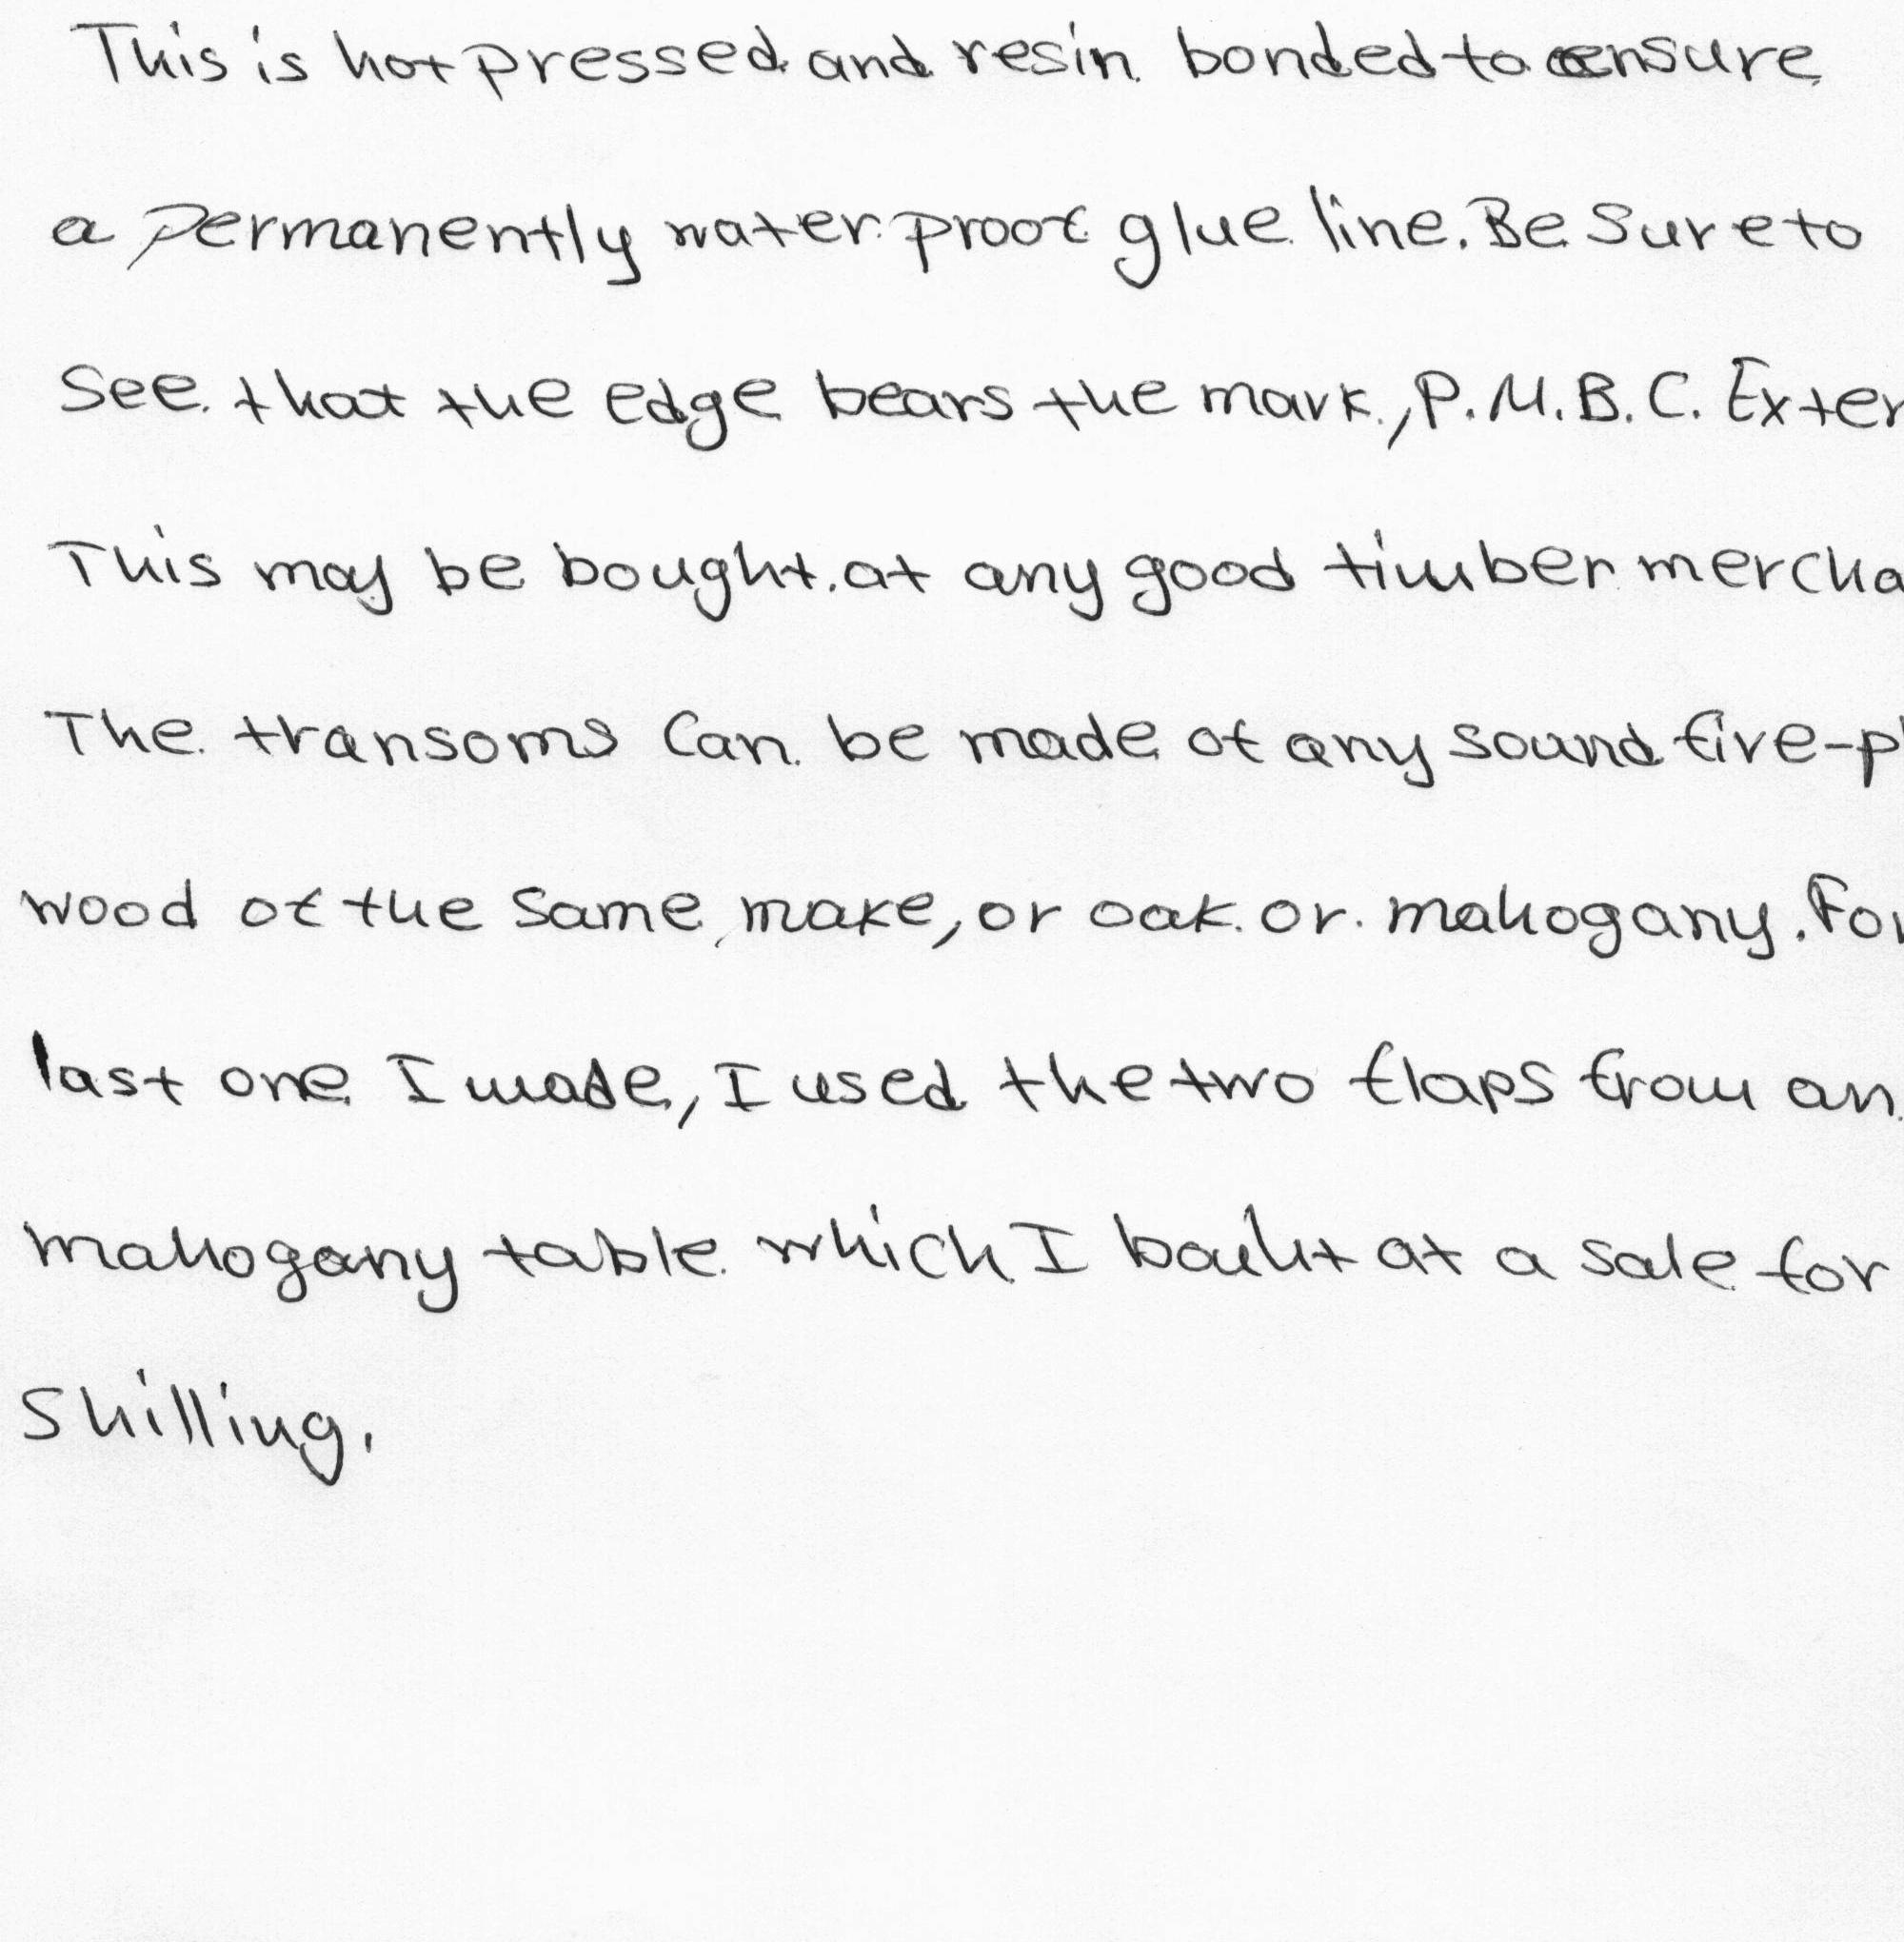 This is hot pressed and resin bonded to ensure
a permanently water proof glue line. Be sure to
See that the edge bears the mark, P.M.B.C. Exter
This may be bought at any good timber mercha
The transoms can be made of any sound five-pl
wood of the same make, or oak or mahogany. For
last one I made, I used the two flaps from an
mahogany table which I bouht at a sale for
Shilling.